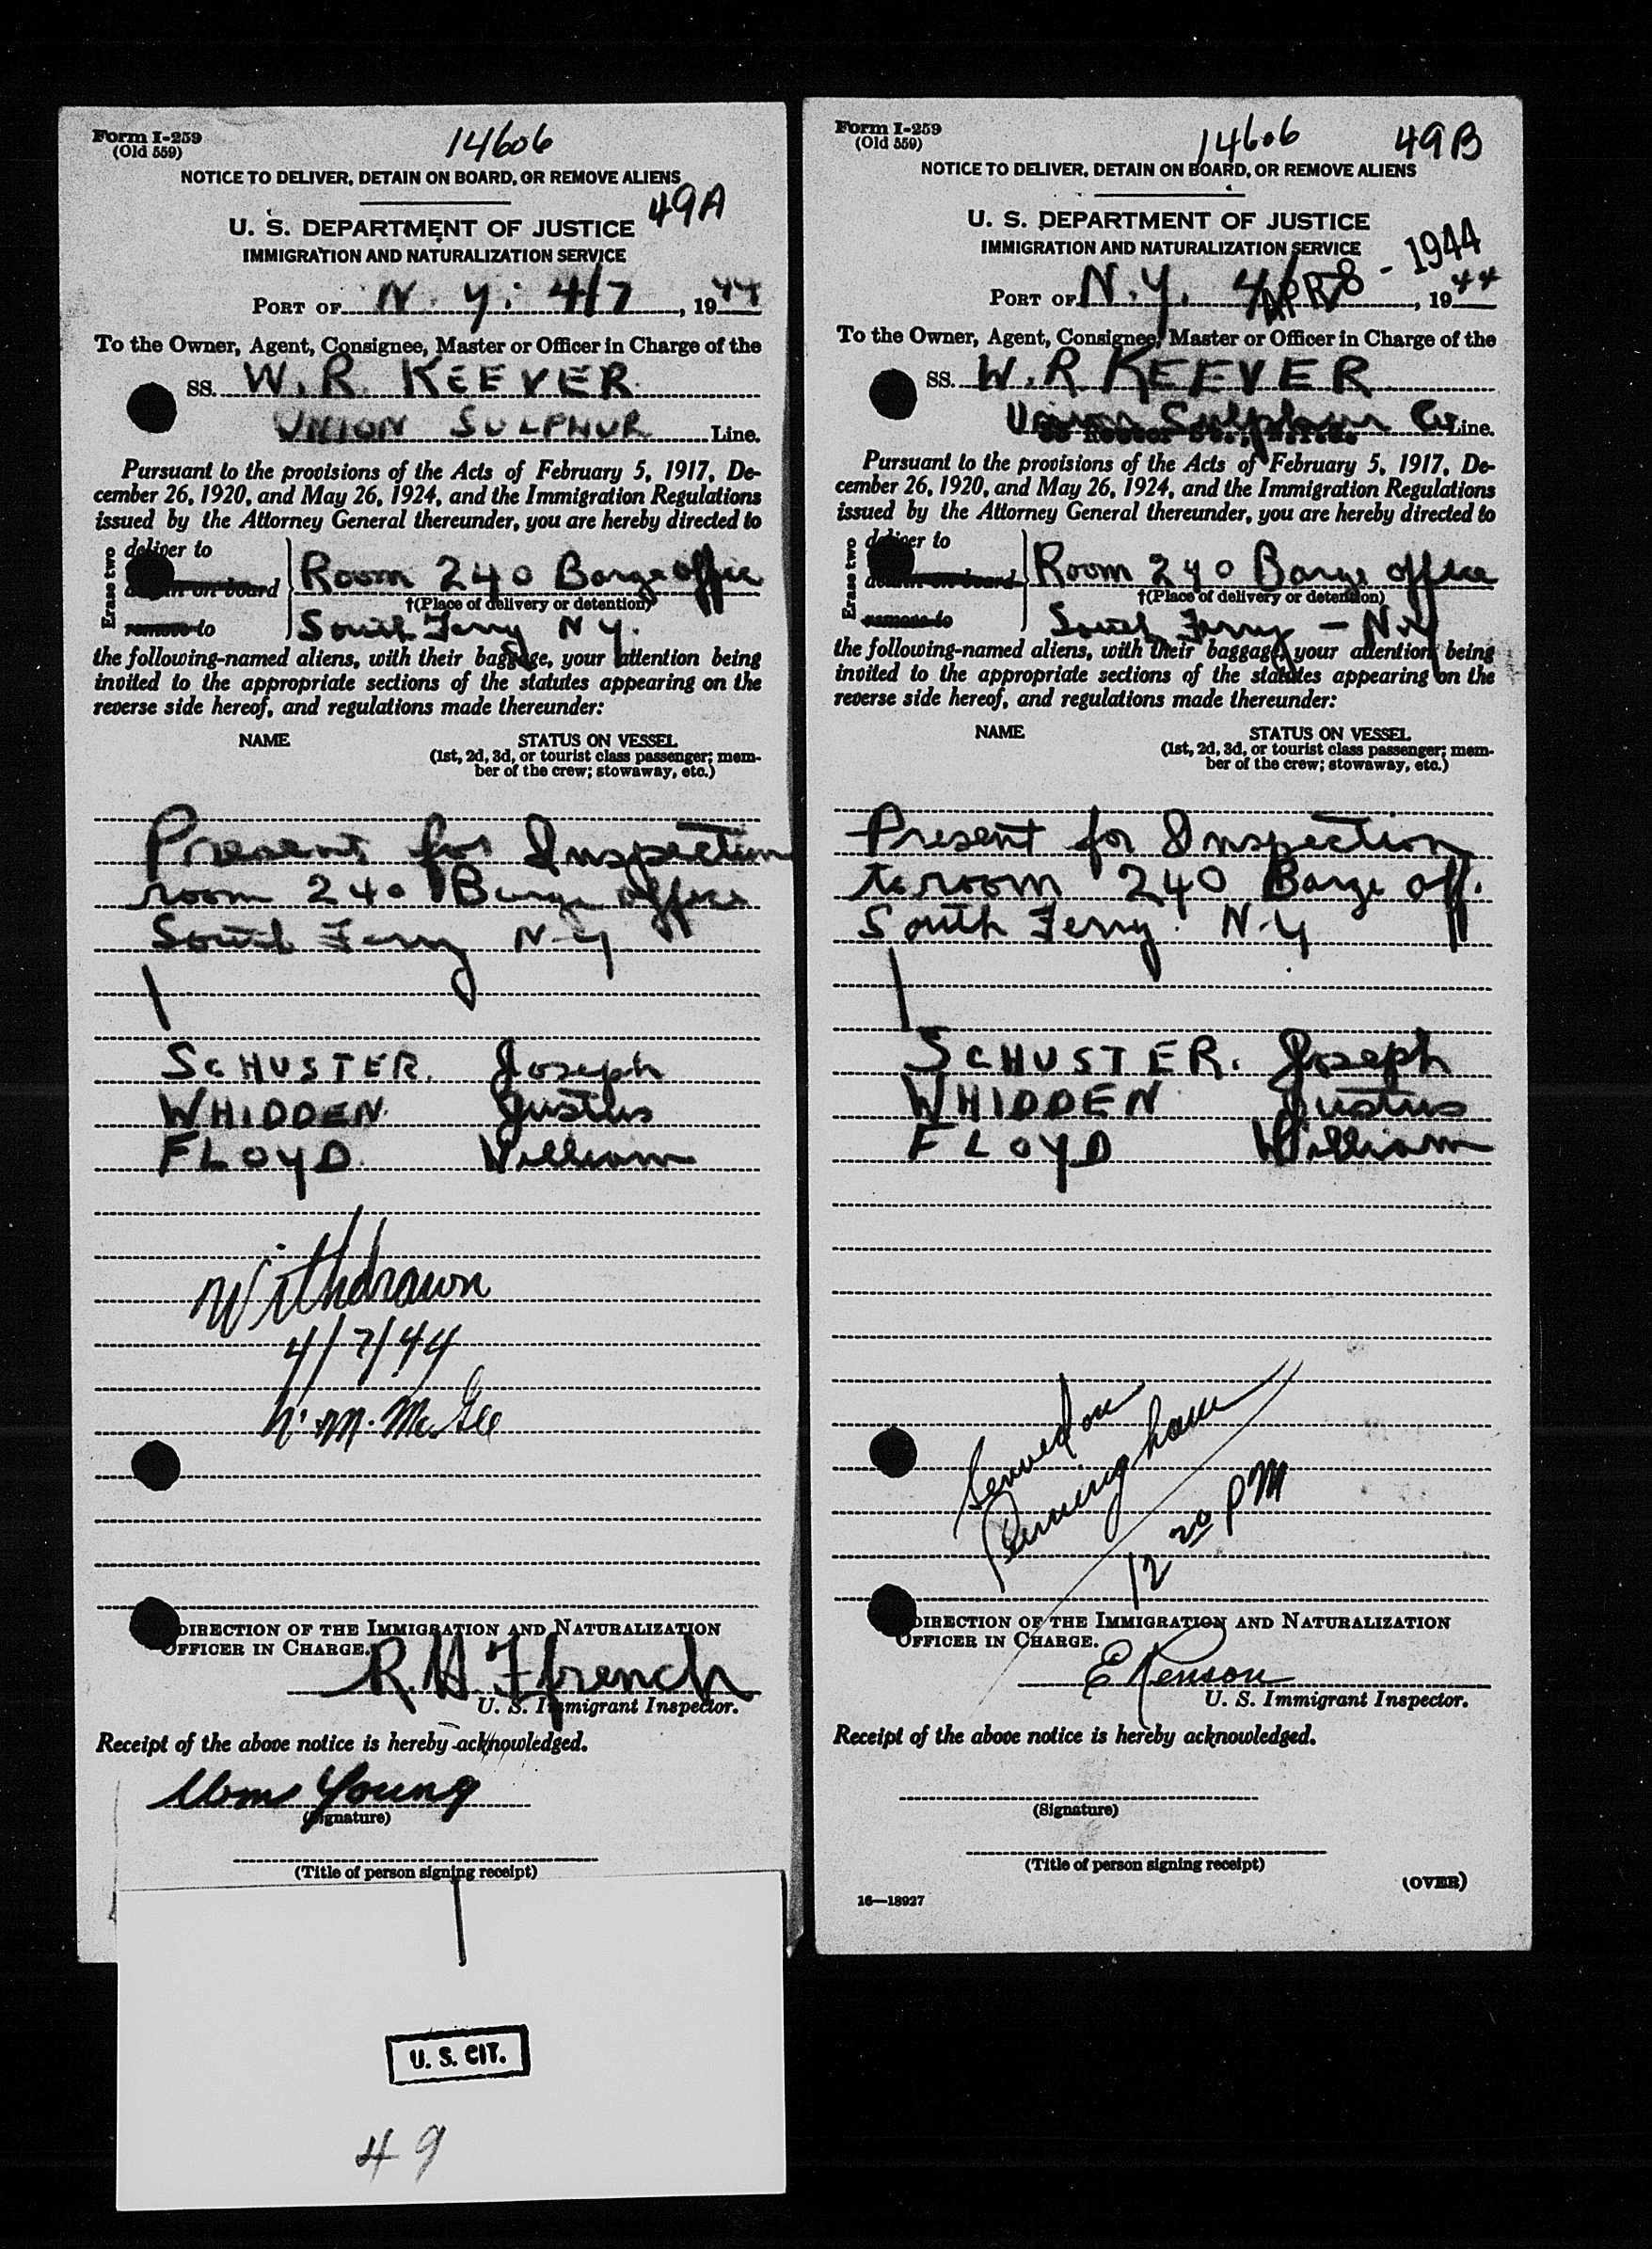 Form I-259
(Old 559)
14606
NOTICE TO DELIVER, DETAIN ON BOARD, OR REMOVE ALIENS
49A
U. S. DEPARTMENT OF JUSTICE
IMMIGRATION AND NATURALIZATION SERVICE
PORT OF N. Y. 4/7, 1944
To the Owner, Agent, Consignee, Master or Officer in Charge of the
SS. W. R. KEEVER
UNION SULPHUR Line.
Pursuant to the provisions of the Acts of February 5, 1917, De-
cember 26, 1920, and May 26, 1924, and the Immigration Regulations
issued by the Attorney General thereunder, you are hereby directed to
Erase two
deliver to
on board
remove to
Room 240 Barge office
†(Place of delivery or detention)
South Ferry N Y.
the following-named aliens, with their baggage, your attention being
invited to the appropriate sections of the statutes appearing on the
reverse side hereof, and regulations made thereunder:
NAME
STATUS ON VESSEL
(1st, 2d, 3d, or tourist class passenger; mem-
ber of the crew; stowaway, etc.)
Present for Inspection
room 240 Barge office
South Ferry N-Y
SCHUSTER. Joseph
WHIDDEN. Justus
FLOYD. William
Withdrawn
4/7/44
M. McGee
DIRECTION OF THE IMMIGRATION AND NATURALIZATION
OFFICER IN CHARGE.
R. H. Ffrench
U. S. Immigrant Inspector.
Receipt of the above notice is hereby acknowledged.
Wm Young
(Signature)
(Title of person signing receipt)
U. S. CIT.
49
Form I-259
(Old 559)
14606
49B
NOTICE TO DELIVER, DETAIN ON BOARD, OR REMOVE ALIENS
U. S. DEPARTMENT OF JUSTICE
IMMIGRATION AND NATURALIZATION SERVICE
APR 8 - 1944
PORT OF N. Y. , 1944
To the Owner, Agent, Consignee, Master or Officer in Charge of the
SS. W. R KEEVER
Union Sulphur Co Line.
Pursuant to the provisions of the Acts of February 5, 1917, De-
cember 26, 1920, and May 26, 1924, and the Immigration Regulations
issued by the Attorney General thereunder, you are hereby directed to
Erase two
deliver to
on board
remove to
Room 240 Barge office
†(Place of delivery or detention)
South Ferry - N.Y
the following-named aliens, with their baggage, your attention being
invited to the appropriate sections of the statutes appearing on the
reverse side hereof, and regulations made thereunder:
NAME
STATUS ON VESSEL
(1st, 2d, 3d, or tourist class passenger; mem-
ber of the crew; stowaway, etc.)
Present for Inspection
to room 240 Barge off.
South Ferry. N-Y
SCHUSTER. Joseph
WHIDDEN Justus
FLOYD William
Served on
12 20 PM
DIRECTION OF THE IMMIGRATION AND NATURALIZATION
OFFICER IN CHARGE.
U. S. Immigrant Inspector.
Receipt of the above notice is hereby acknowledged.
(Signature)
(Title of person signing receipt)
(OVER)
16—18927